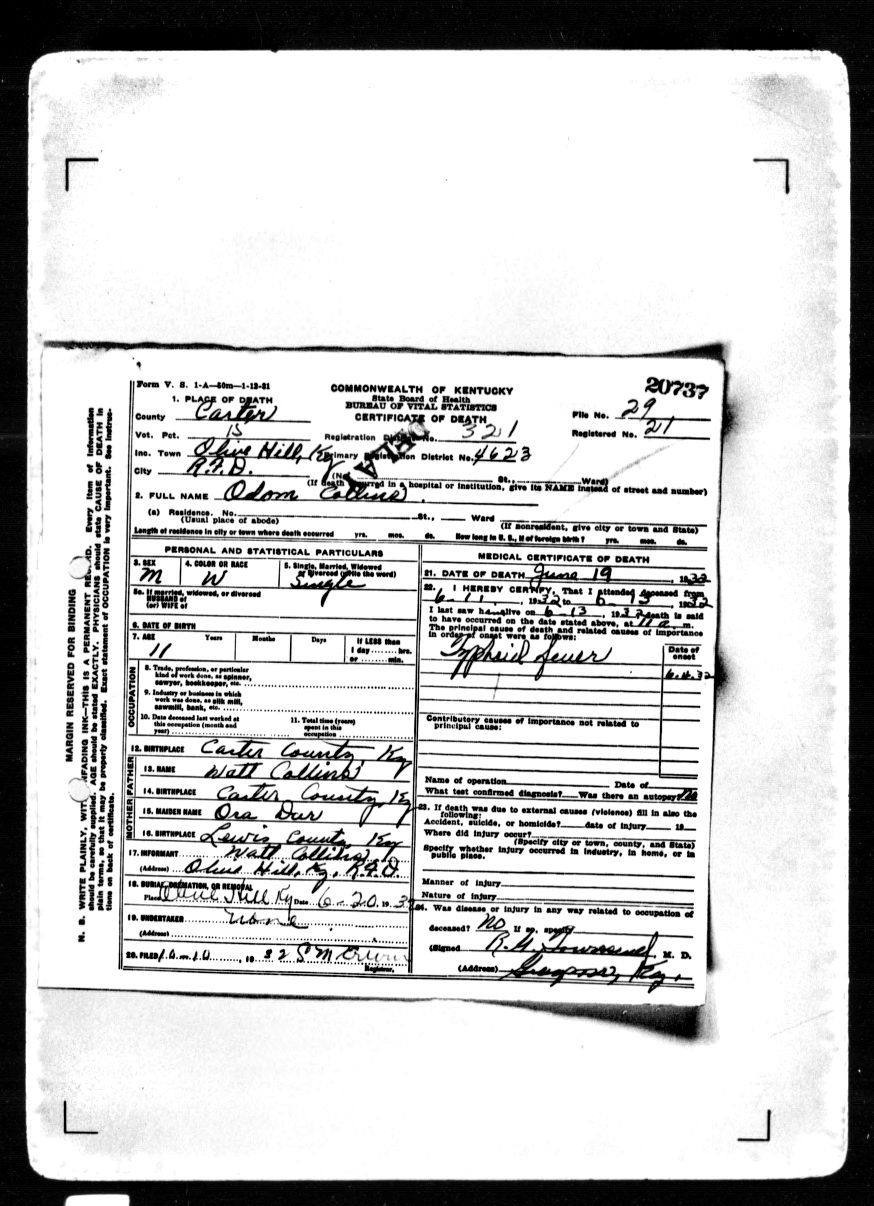 Form V. S. 1-A—50m—1-12-31
20737
COMMONWEALTH OF KENTUCKY
State Board of Health
BUREAU OF VITAL STATISTICS
CERTIFICATE OF DEATH
1. PLACE OF DEATH
County Carter
File No. 29
Vot. Pct. 15
Registration District No. 321
Registered No. 21
Inc. Town Olive Hill, Ky
Primary Registration District No. 4623
City R.F.D.
(No. St., Ward)
(If death occurred in a hospital or institution, give its NAME instead of street and number)
2. FULL NAME Odom Collins
(a) Residence. No. St., Ward
(Usual place of abode) (If nonresident, give city or town and State)
Length of residence in city or town where death occurred yrs. mos. ds. How long in U. S., if of foreign birth? yrs. mos. ds.
PERSONAL AND STATISTICAL PARTICULARS
3. SEX M
4. COLOR OR RACE W
5. Single, Married, Widowed or Divorced (write the word) Single
5a. If married, widowed, or divorced
HUSBAND of
(or) WIFE of
6. DATE OF BIRTH
7. AGE Years Months Days If LESS than
11 1 day hrs.
or min.
OCCUPATION
8. Trade, profession, or particular
kind of work done, as spinner,
sawyer, bookkeeper, etc.
9. Industry or business in which
work was done, as silk mill,
sawmill, bank, etc.
10. Date deceased last worked at
this occupation (month and
year)
11. Total time (years)
spent in this
occupation
12. BIRTHPLACE Carter County Ky
FATHER
13. NAME Watt Collins
14. BIRTHPLACE Carter County Ky
MOTHER
15. MAIDEN NAME Ora
16. BIRTHPLACE Lewis County, Ky
17. INFORMANT Watt Collins
(Address) Olive Hill, Ky, R.F.D.
18. BURIAL, CREMATION, OR REMOVAL
Place Olive Hill Ky Date 6-20, 1932
19. UNDERTAKER none
(Address)
20. FILED 10-10, 1932 S M Erwin
Registrar.
MEDICAL CERTIFICATE OF DEATH
21. DATE OF DEATH June 19, 1932
22. I HEREBY CERTIFY, That I attended deceased from
6-11, 1932 to 6-13, 1932
I last saw h alive on 6-13, 1932 death is said
to have occurred on the date stated above, at 11 a. m.
The principal cause of death and related causes of importance
in order of onset were as follows:
Date of onset
Typhoid fever
Contributory causes of importance not related to
principal cause:
Name of operation Date of
What test confirmed diagnosis? Was there an autopsy? no
23. If death was due to external causes (violence) fill in also the
following:
Accident, suicide, or homicide? date of injury 19
Where did injury occur?
(Specify city or town, county, and State)
Specify whether injury occurred in industry, in home, or in
public place.
Manner of injury
Nature of injury
24. Was disease or injury in any way related to occupation of
deceased? No If so, specify
(Signed R. G. Townsend, M. D.
(Address) Ky.
MARGIN RESERVED FOR BINDING
N. B. WRITE PLAINLY, WITH UNFADING INK—THIS IS A PERMANENT RECORD. Every item of information
should be carefully supplied. AGE should be stated EXACTLY. PHYSICIANS should state CAUSE OF DEATH in
plain terms, so that it may be properly classified. Exact statement of OCCUPATION is very important. See instruc-
tions on back of certificate.